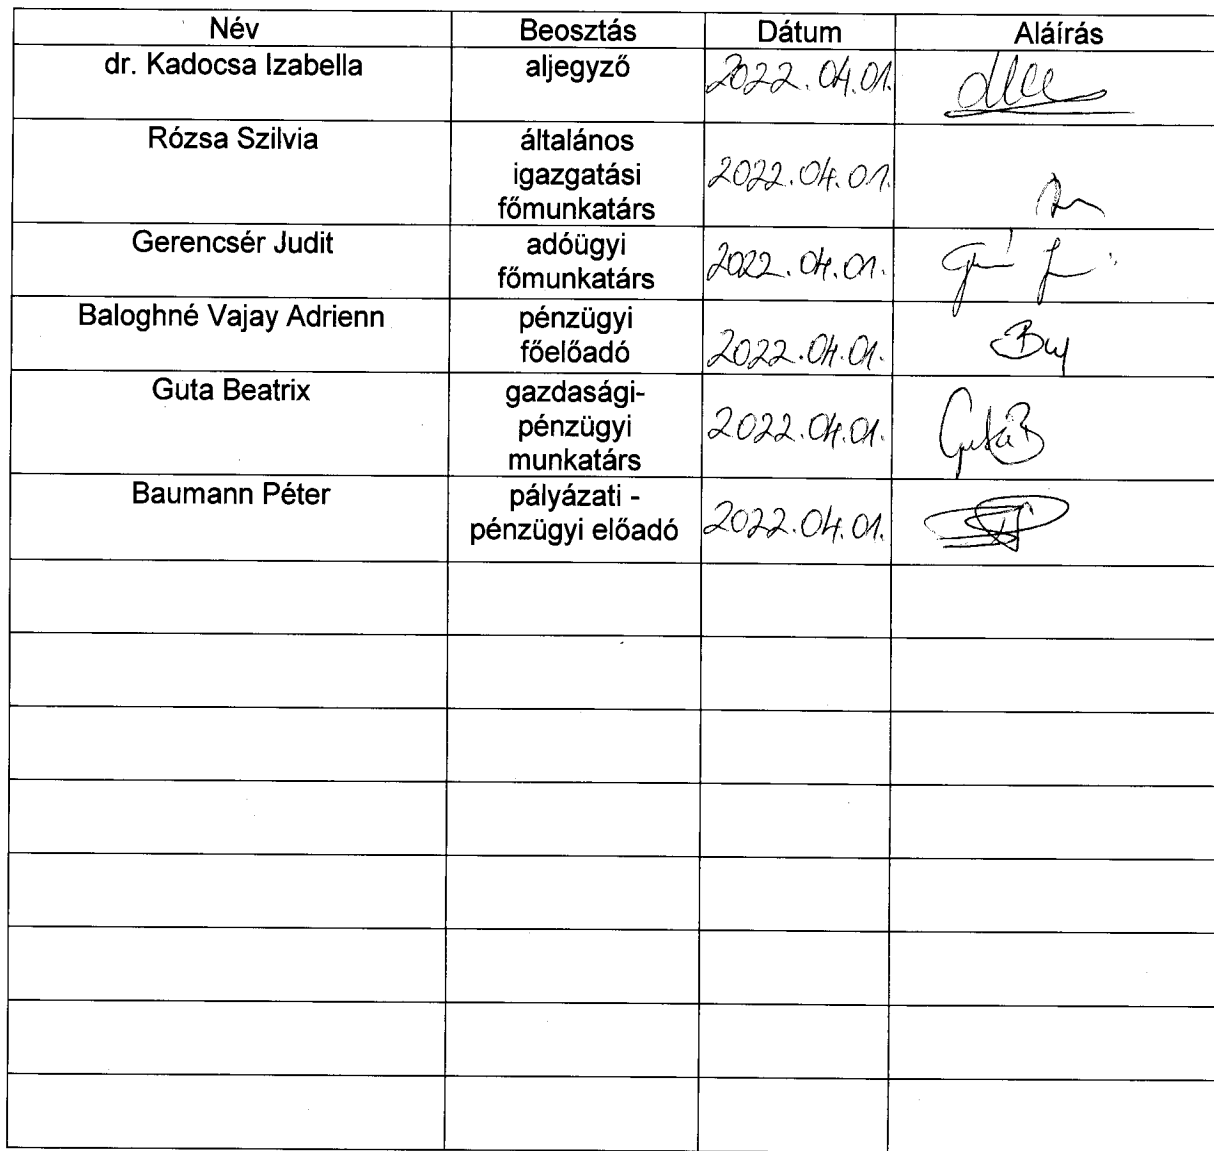 Név Beosztás Dátum Aláírás
dr. Kadocsa Izabella aljegyző 2022.04.01.
Rózsa Szilvia általános
igazgatási 2022.04.01.
főmunkatárs
Gerencsér Judit adóügyi
főmunkatárs 2022.04.01.
Baloghné Vajay Adrienn pénzügyi
főelőadó 2022.04.01.
Guta Beatrix gazdasági-
pénzügyi 2022.04.01. Guta B
munkatárs
Baumann Péter pályázati -
pénzügyi előadó 2022.04.01.